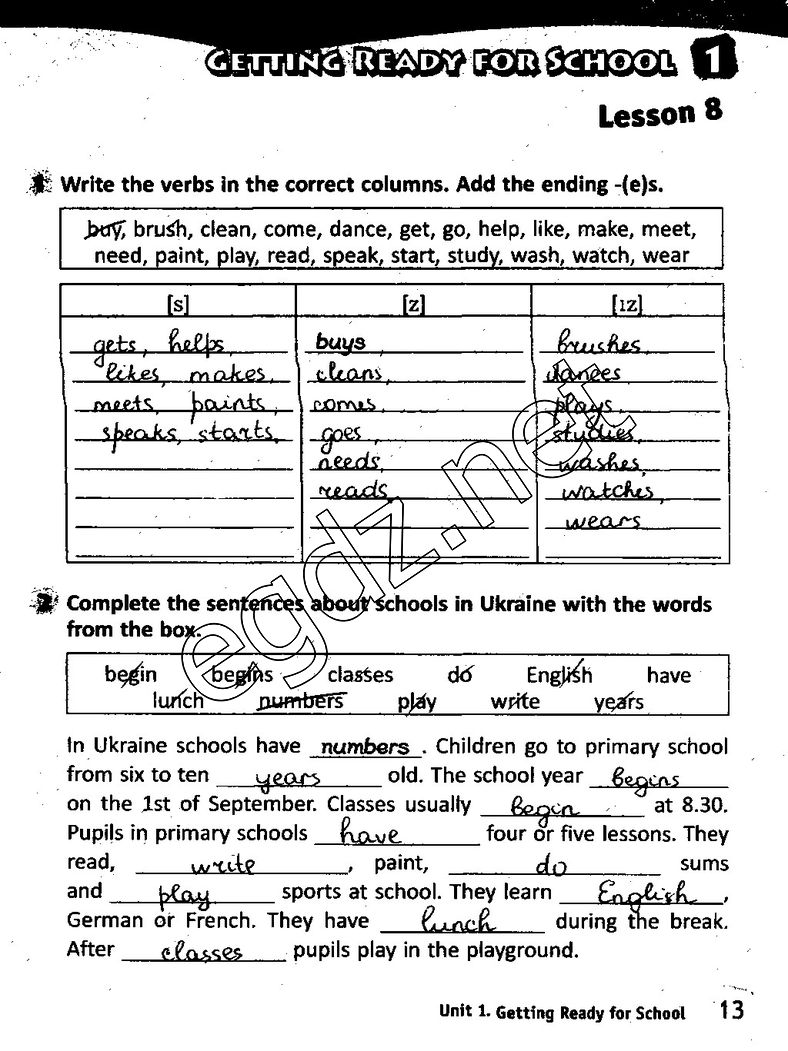 GETTING READY FOR SCHOOL 1
Lesson 8
1 Write the verbs in the correct columns. Add the ending -(e)s.
buy, brush, clean, come, dance, get, go, help, like, make, meet,
need, paint, play, read, speak, start, study, wash, watch, wear
[s] [z] [ɪz]
gets, helps, buys, brushes,
likes, makes, cleans, dances
meets, paints, comes, plays,
speaks, starts, goes, studies,
needs, washes,
reads watches,
wears
egdz.net
2 Complete the sentences about schools in Ukraine with the words
from the box.
begin begins classes do English have
lunch numbers play write years
In Ukraine schools have numbers. Children go to primary school
from six to ten years old. The school year begins
on the 1st of September. Classes usually begin at 8.30.
Pupils in primary schools have four or five lessons. They
read, write, paint, do sums
and play sports at school. They learn English,
German or French. They have lunch during the break.
After classes pupils play in the playground.
Unit 1. Getting Ready for School 13